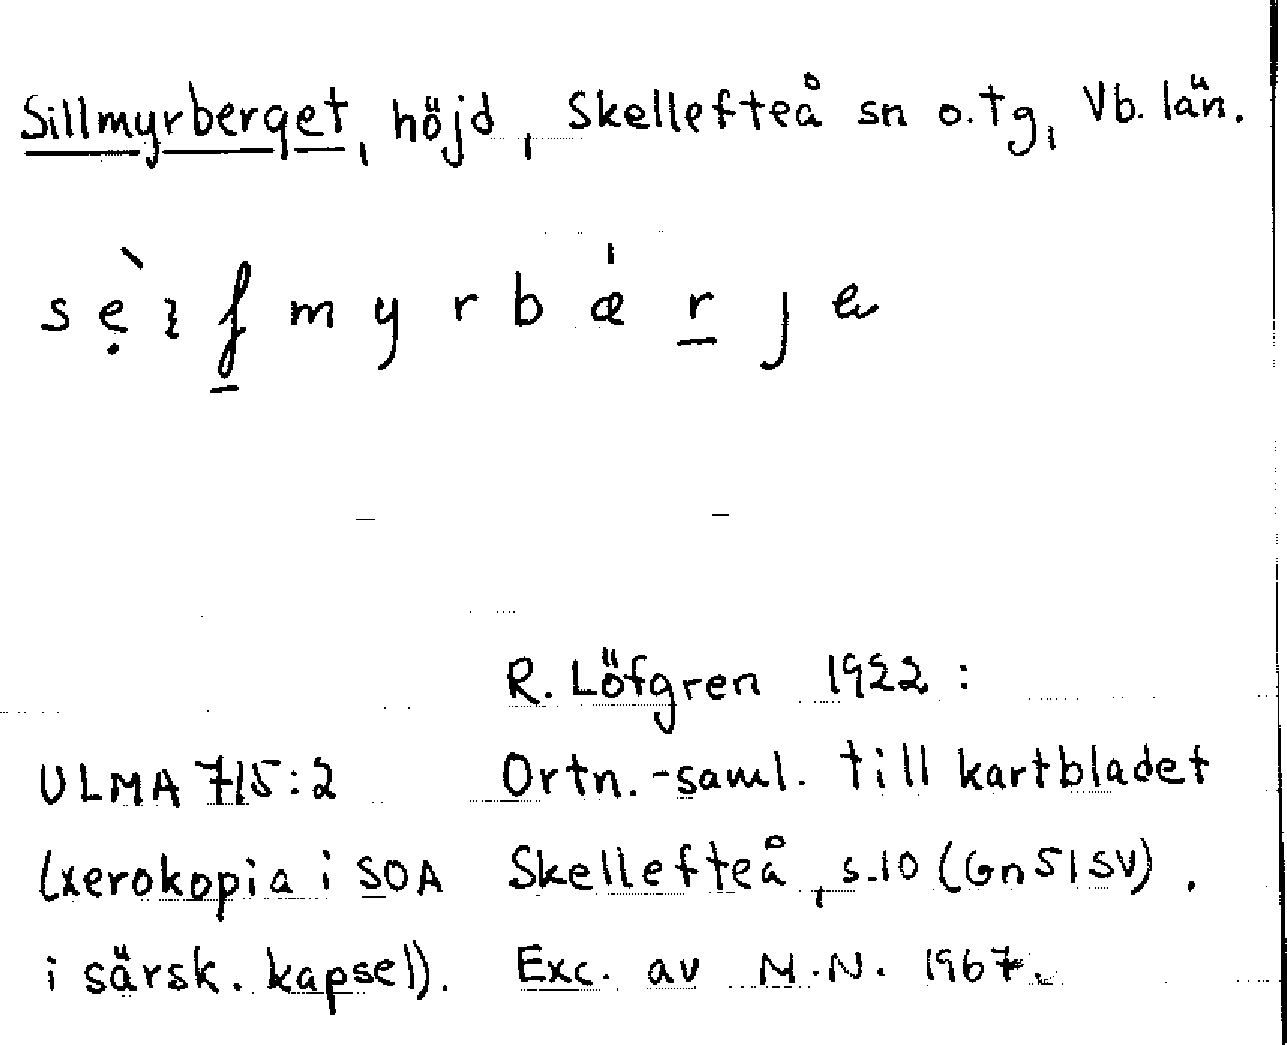 Sillmyrberget, höjd, Skellefteå sn o. tg, Vb. län.
R. Löfgren 1922:
ULMA 715:2 Ortn.-saml. till kartbladet
(xerokopia i SOA Skellefteå, s. 10 (Gn51SV).
i särsk. kapsel). Exc. av M.N. 1967.